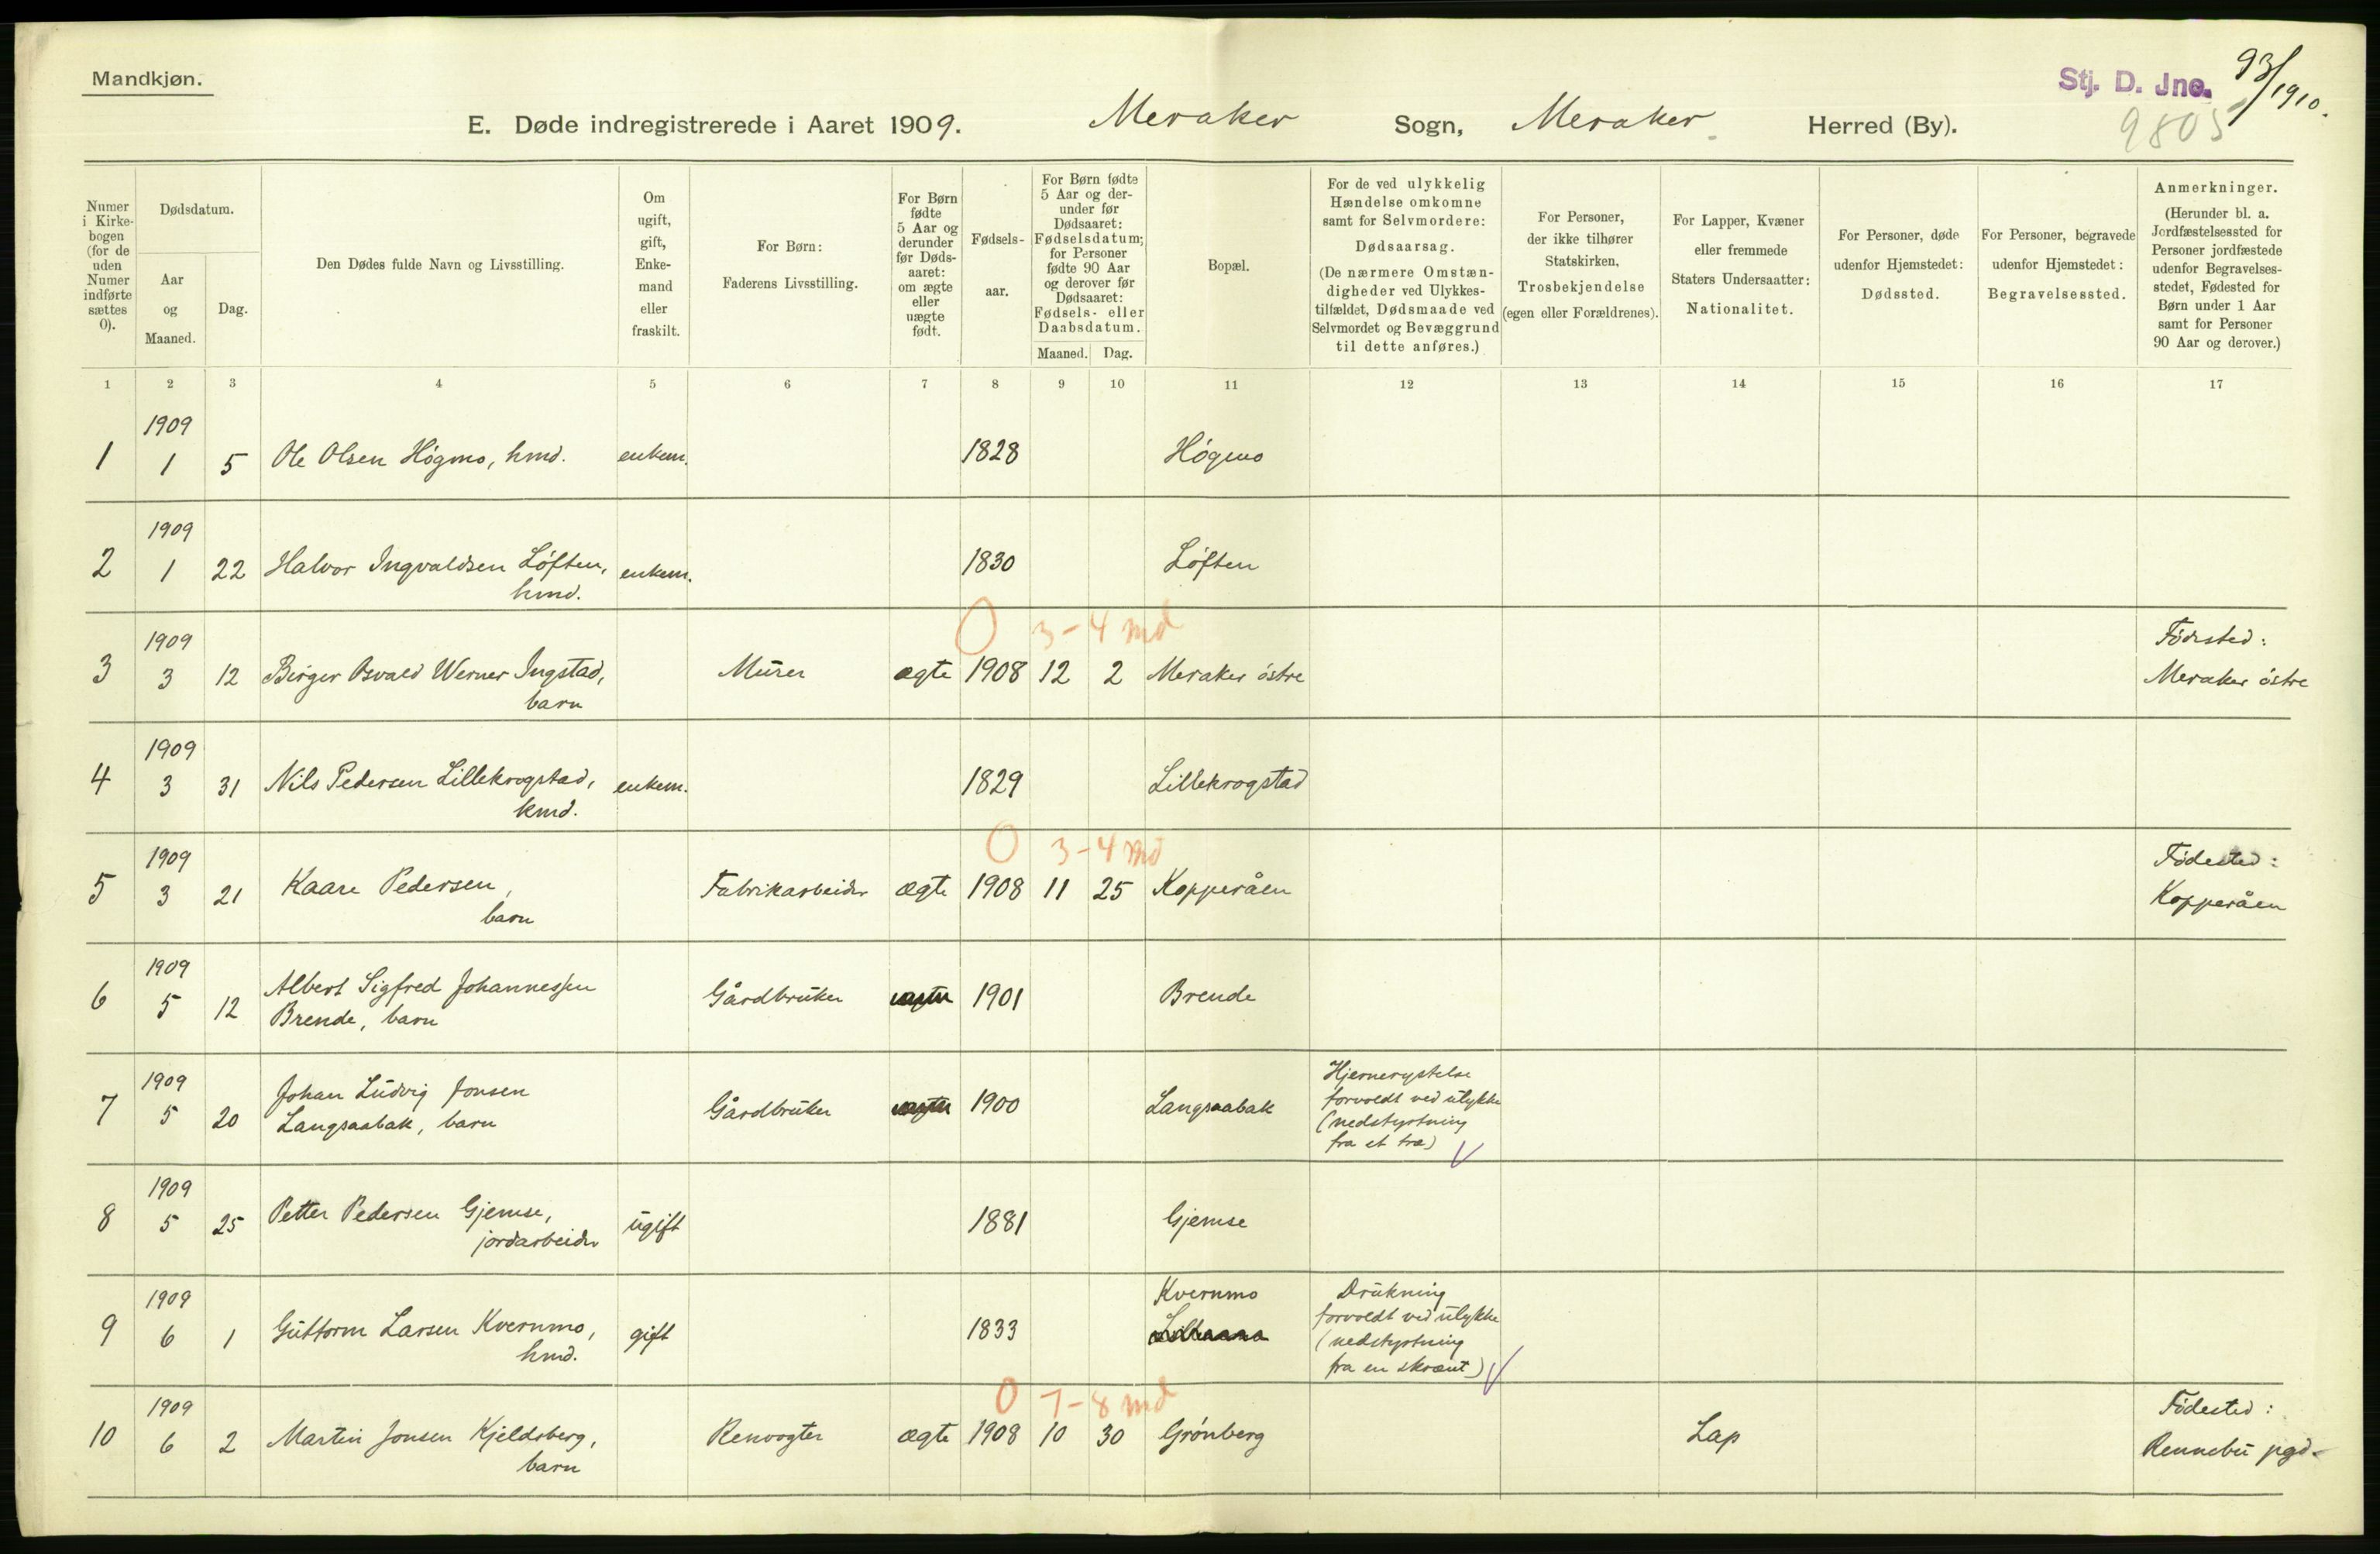 Mandkjøn.
Stj. D. Jno. 93/1910.
9805
E. Døde indregistrerede i Aaret 1909. Meraker Sogn, Meraker Herred (By).
Numer i Kirke-bogen (for de uden Numer indførte sættes 0).
Dødsdatum.
Aar og Maaned.
Dag.
Den Dødes fulde Navn og Livsstilling.
Om ugift, gift, Enke-mand eller fraskilt.
For Børn: Faderens Livsstilling.
For Børn fødte 5 Aar og derunder før Døds-aaret: om ægte eller uægte født.
Fødsels-aar.
For Børn fødte 5 Aar og der-under før Dødsaaret: Fødselsdatum; for Personer fødte 90 Aar og derover før Dødsaaret: Fødsels- eller Daabsdatum.
Maaned. Dag.
Bopæl.
For de ved ulykkelig Hændelse omkomne samt for Selvmordere: Dødsaarsag. (De nærmere Omstæn-digheder ved Ulykkes-tilfældet, Dødsmaade ved Selvmordet og Bevæggrund til dette anføres.)
For Personer, der ikke tilhører Statskirken, Trosbekjendelse (egen eller Forældrenes).
For Lapper, Kvæner eller fremmede Staters Undersaatter: Nationalitet.
For Personer, døde udenfor Hjemstedet: Dødssted.
For Personer, begravede udenfor Hjemstedet: Begravelsessted.
Anmerkninger. (Herunder bl. a. Jordfæstelsessted for Personer jordfæstede udenfor Begravelses-stedet, Fødested for Børn under 1 Aar samt for Personer 90 Aar og derover.)
1 2 3 4 5 6 7 8 9 10 11 12 13 14 15 16 17
1909
1 1 5 Ole Olsen Högmo, hmd. enkem. 1828 Högmo
1909
2 1 22 Halvor Ingvaldsen Löften, enkem. 1830 Löften
hmd.
0 3-4 md
1909 Födested:
3 3 12 Birger Osvald Werner Ingstad, Murer ægte 1908 12 2 Meraker östre Meraker östre
barn
1909
4 3 31 Nils Pedersen Lillekrogstad, enkem. 1829 Lillekrogstad
kmd.
0 3-4 md
1909 Födested:
5 3 21 Kaare Pedersen, Fabrikarbeider ægte 1908 11 25 Kopperåen Kopperåen
barn
1909
6 5 12 Albert Sigfred Johannessen Gårdbruker 1901 Brende
Brende, barn
1909
7 5 20 Johan Ludvig Jonsen Gårdbruker 1900 Langsaabak
Langsaabak, barn
Hjernerystelse
forvoldt ved ulykke
(nedstyrtning
fra et træ)
1909
8 5 25 Petter Pedersen Gjemse, ugift 1881 Gjemse
jordarbeider
1909
9 6 1 Guttorm Larsen Kvernmo, gift 1833 Kvernmo
hmd.
Drukning
forvoldt ved ulykke
(nedstyrtning
fra en skrænt)
0 7-8 md
1909 Födested:
10 6 2 Martin Jonsen Kjeldsberg, Renvogter ægte 1908 10 30 Grönberg Lap Rennebu pgd.
barn